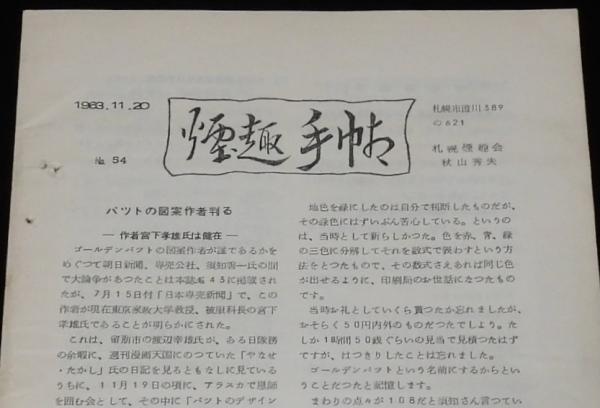 1963.11.20
№ 54
煙趣手帖
札幌市澄川389
の621
札幌煙趣会
秋山秀夫
バツトの図案作者判る
― 作者宮下孝雄氏は健在 ―
ゴールデンバツトの図案作者が誰であるかを
めぐつて朝日新聞、専売公社、須知善一氏の間
で大論争があつたことは本誌№45に掲載され
たが、7月15日付「日本専売新聞」で、この
作者が現在東京家政大学教授、被服科長の宮下
孝雄氏であることが明らかにされた。
これは、留萠市の渡辺幸雄が、ある日隊務
の余暇に、週刊漫画天国にのつていた「やなせ
・たかし」氏の日記を見るともなしに見ている
うちに、11月19日の項に、アラスカで恩師
を囲む会として、その中に「バツトのデザイン
地色を緑にしたのは自分で判断したものだが、
その緑色にはずいぶん苦心している。というの
は、当時として新らしかつた。色を赤、青、緑
の三色に分解してそれを数式で表わすという方
法をとつたもので、その数式さえあれば同じ色
が出せるように、印刷局のお世話になつたもの
です。
当時お礼としていくら貰つたか忘れましたが、
おそらく50円内外のものだつたでしよう。た
しか1時間50銭ぐらいの見当で見積つたはず
ですが、はつきりしたことは忘れました。
ゴールデンバツトという名前にするからとい
うことだつたと記憶します。
まわりの点々が108だと須知さん言つてい